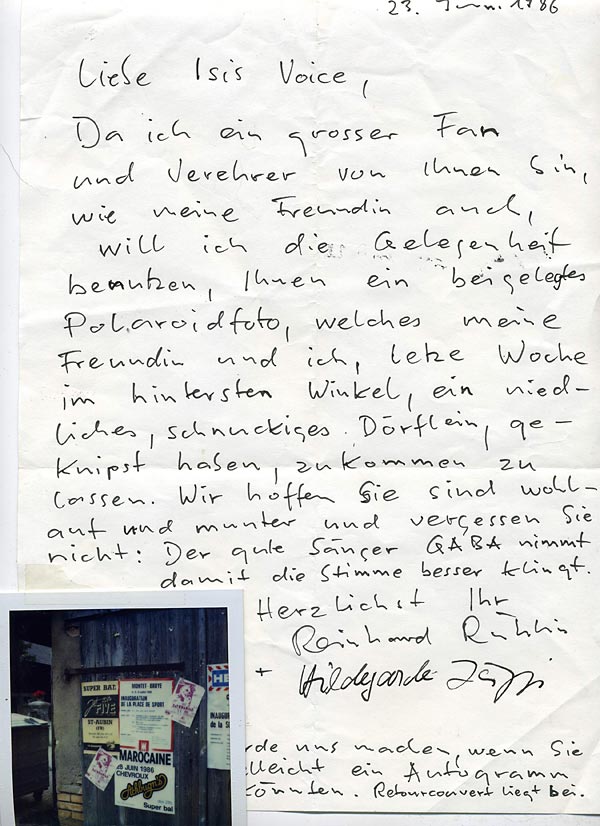 23. Juni 1986
Liebe Isis Voice,
Da ich ein grosser Fan
und Verehrer von Ihnen bin,
wie meine Freundin auch,
will ich die Gelegenheit
benutzen, Ihnen ein beigelegtes
Polaroidfoto, welches meine
Freundin und ich, letze Woche
im hintersten Winkel, ein nied-
liches, schnuckiges Dörflein, ge-
knipst haben, zukommen zu
lassen. Wir hoffen Sie sind wohl-
auf und munter und vergessen Sie
nicht: Der gute Sänger GABA nimmt
damit die Stimme besser klingt.
Herzlichst Ihr
Reinhard
+ Hildegarde
rde uns machen, wenn Sie
lleicht ein Autogramm
könnten. Retourcouvert liegt bei.
SUPER BAL
FIVE
ST-AUBIN
(FR)
MONTET-BROYE
INAUGURATION
DE LA PLACE DE SPORT
MAROCAINE
JUIN 1986
CHEVROUX
Super bal
HE
INAUGU